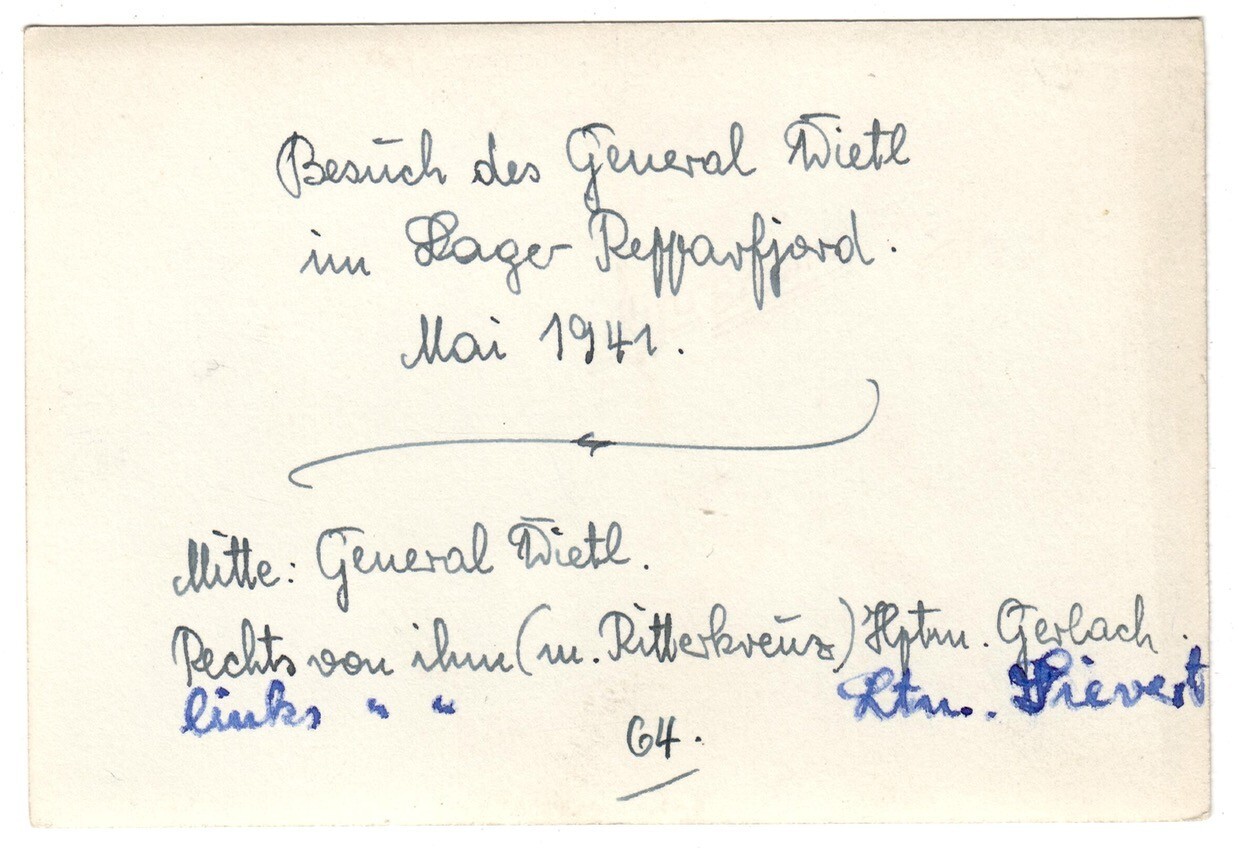 Besuch des General Dietl
im Lager Repparfjord.
Mai 1941.
Mitte: General Dietl.
Rechts von ihm (m. Ritterkreuz) Hptm. Gerlach.
links " " Ltn. Sievert
64.